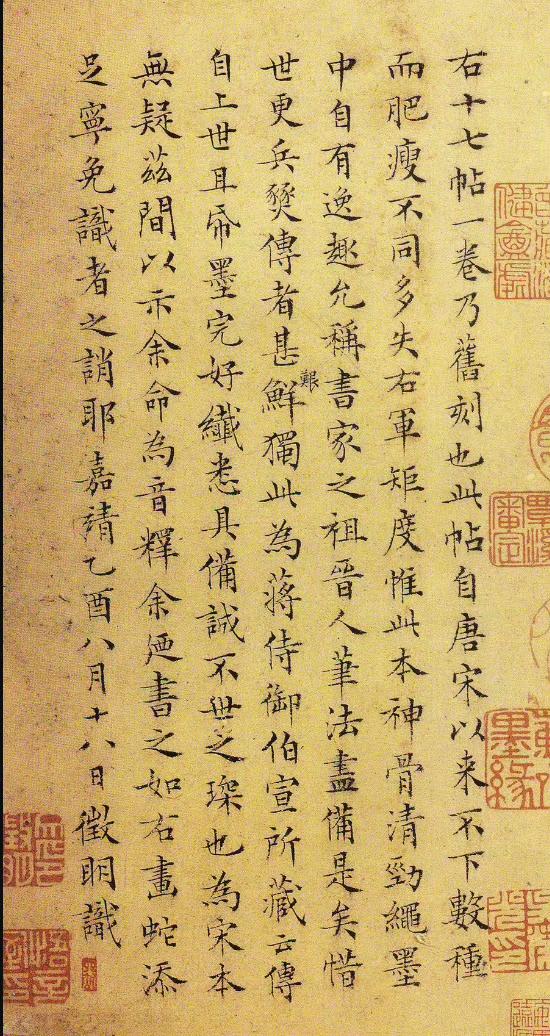 右十七帖一卷乃舊刻也此帖自唐宋以来不下數種
而肥瘦不同多失右軍矩度惟此本神骨清勁繩墨
中自有逸趣允稱書家之祖晉人筆法盡備是矣惜
世更兵燹傳者甚鮮獨此為蔣侍御伯宣所藏云傳
自上世耳帋墨完好纖悉具備誠不世之琛也為宋本
無疑茲間以示余命為音釋余廼書之如右畫蛇添
足寧免識者之誚耶嘉靖乙酉八月十八日徵明識
覃溪審定